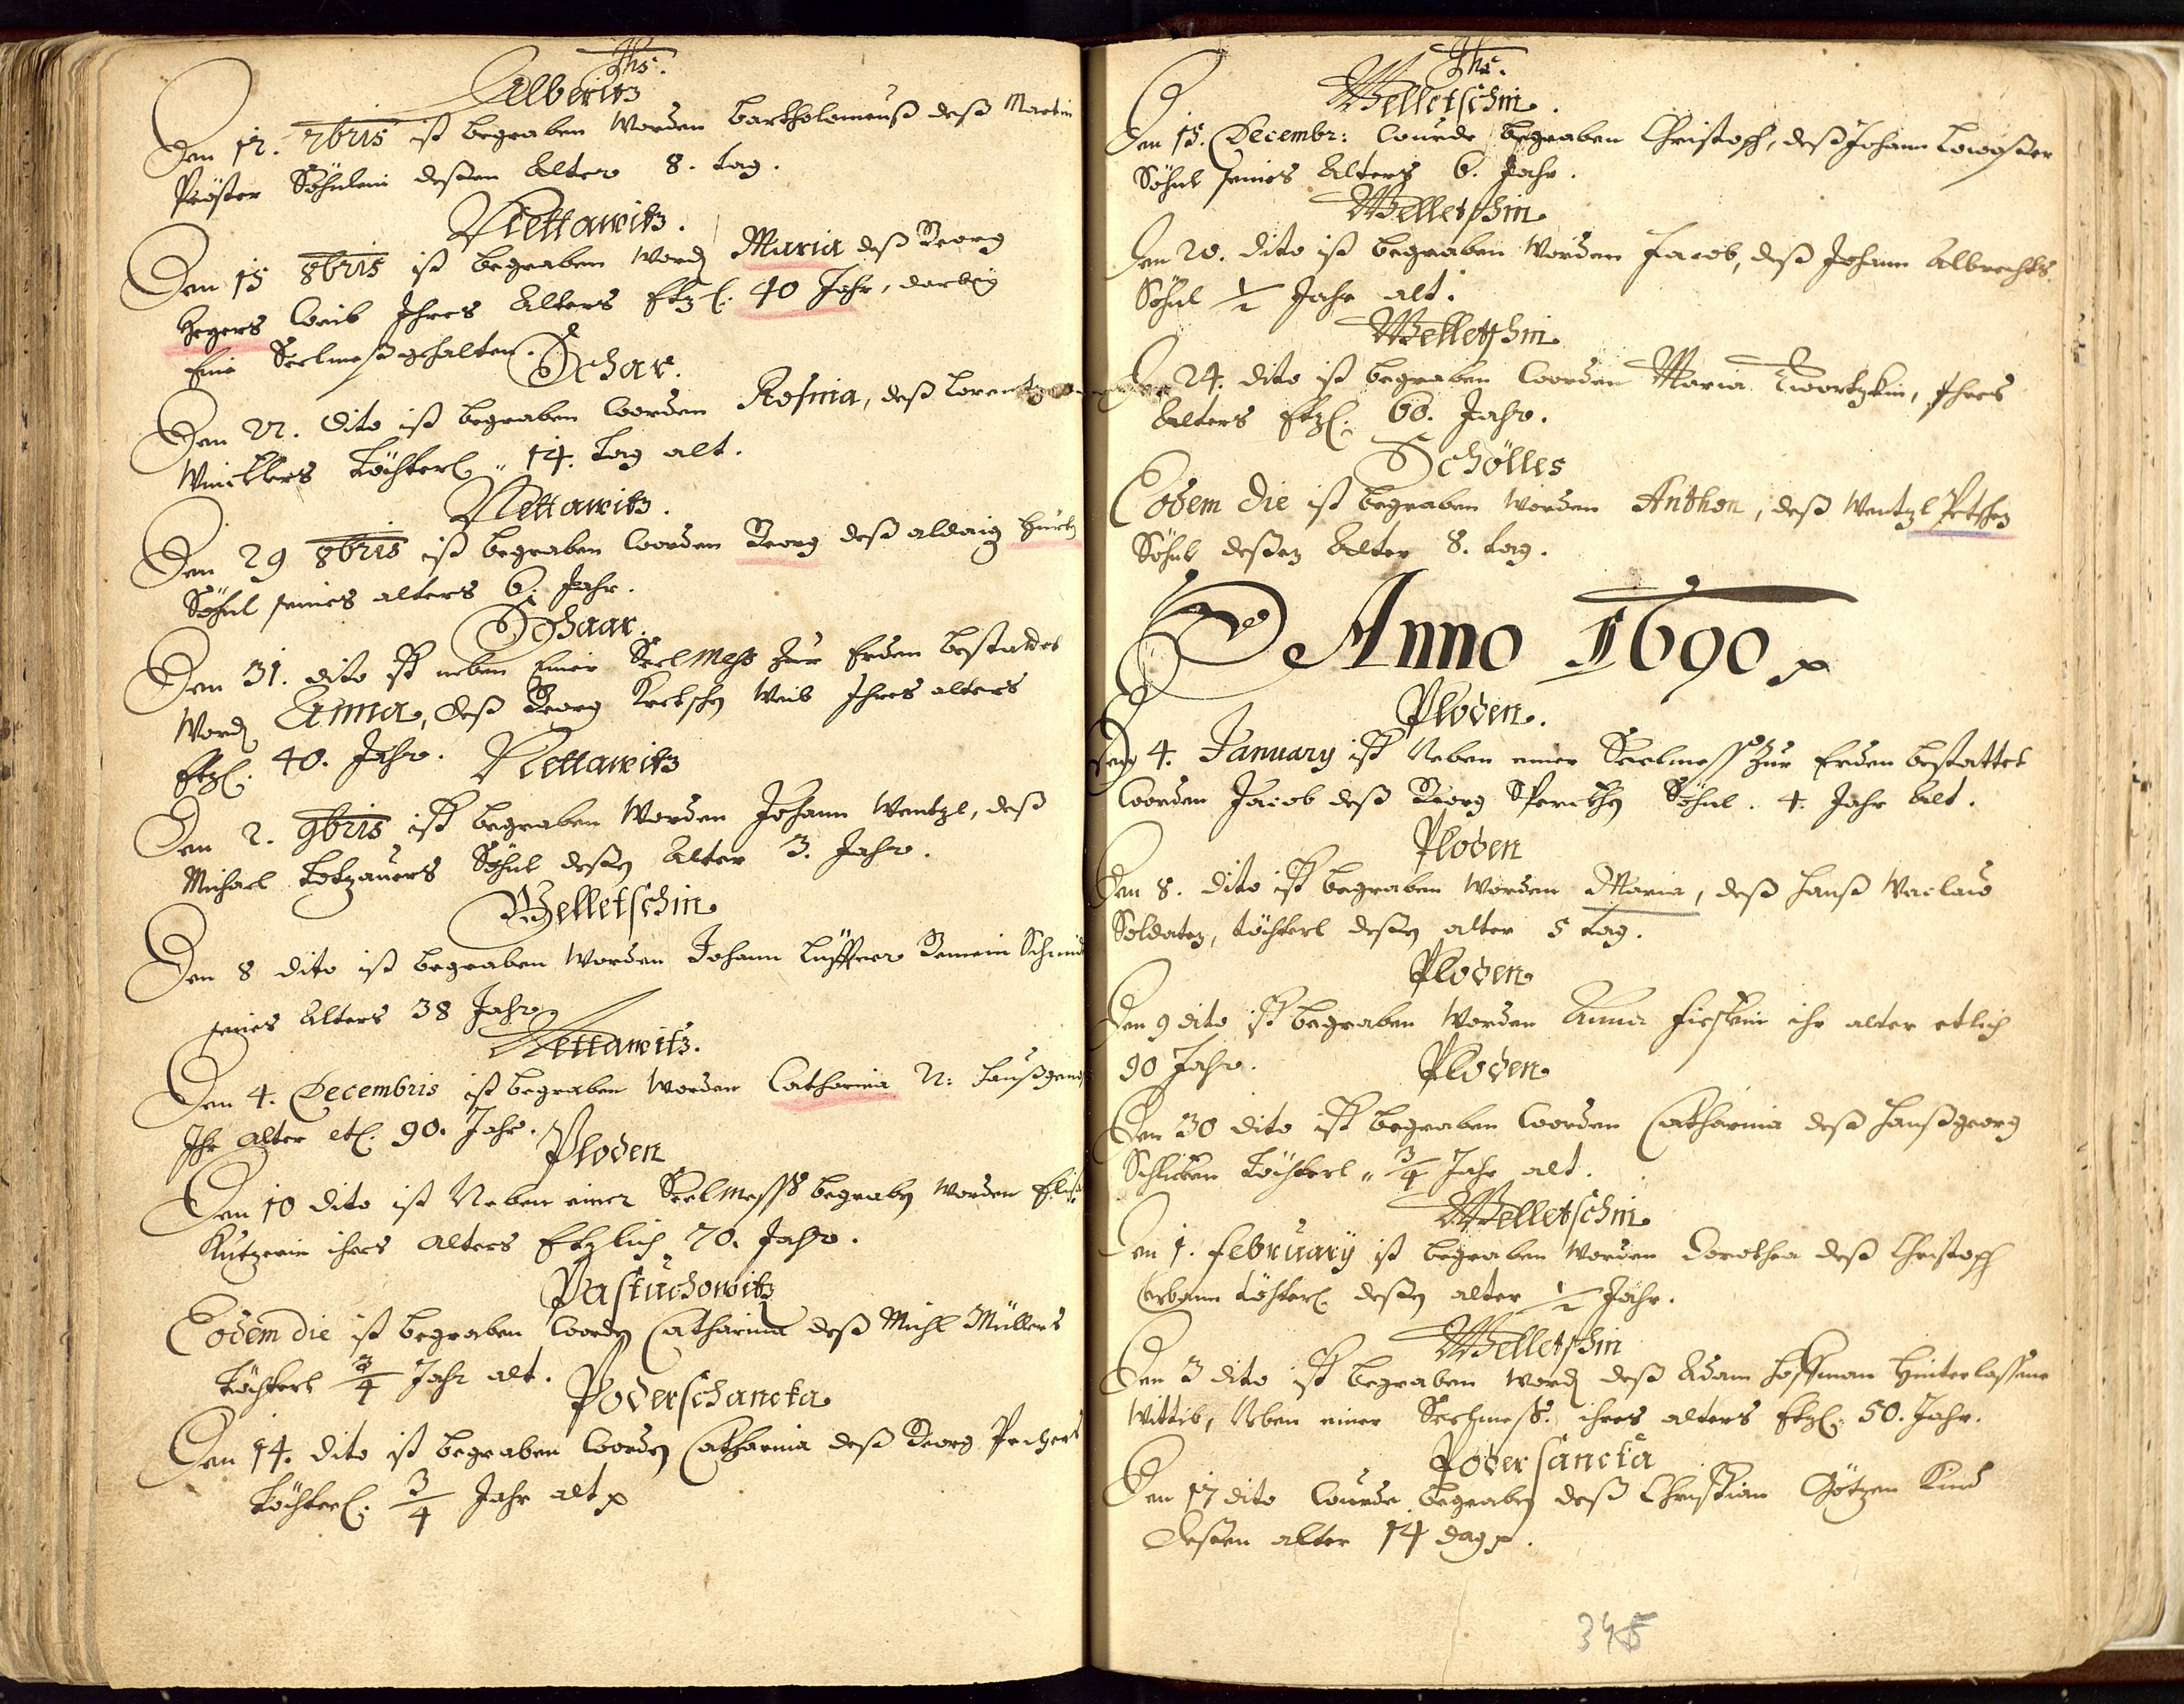 Jhs.
Alberitz
Den 12. 7bris ist begraben Worden Bartholomeuß deß Martin
Pröster Söhnlein deßen Alter 8. tag.
Nettawitz.
Den 15 8bris ist begraben Word Maria deß Georg
Hegers Weib Ihres Alters Etzl. 40 Jahr, darbeÿ
Eine Seelmeß gehalten.
Schar.
Den 22. dito ist begraben Worden Rosina, deß Lorentz
Wincklers töchterl 14. tag alt.
Nettawitz.
Den 29 8bris ist begraben Worden Georg deß aldaig Hürtz
Söhnl seines alters 6. Jahr.
Schaar.
Den 31. dito ist neben Einer Seelmess zur Erden bestattet
Word Anna, deß Georg Kretschen Weib Ihres alters
Etzl. 40. Jahr.
Nettawitz
Den 2. 9bris ist begraben Worden Johann Wentzl, deß
Michael Totzauers Söhnl deßen Alter 3. Jahr.
Welletschin
Den 8 dito ist begraben Worden Johann Lüfftner Gemein Schmid
seines Alters 38 Jahr
Nettawitz.
Den 4. Decembris ist begraben Worden Catharina N: Haußgenoß
Ihr alter etl. 90. Jahr.
Ploden
Den 10 dito ist Neben einer Seelmeß begraben Worden Elis:
Kutzerin ihres alters Etzlich 70. Jahr.
Pastuchowitz
Eodem die ist begraben Worden Catharina deß Michl Müllers
töchterl 3/4 Jahr alt.
Poderschancka
Den 14. dito ist begraben Worden Catharina deß Georg Pechers
töchterl. 3/4 Jahr alt
Jhs.
Welletschin.
Den 15. Decembr: Wurde begraben Christoph, deß Johann Lowaßer
Söhnl seines Alters 6. Jahr.
Welletschin
Den 20. dito ist begraben Worden Jacob, deß Johann Albrechts
Söhnl 1/2 Jahr alt.
Welletschin
Den 24. dito ist begraben Worden Maria Twortzkin, Ihres
Alters Etzl. 60. Jahr.
Schölles
Eodem die ist begraben Worden Anthon, deß Wentzl Petschen
Söhnl deßen Alter 8. tag.
Anno 1690
Ploden.
Den 4. January ist Neben einer Seelmess zur Erden bestattet
Worden Jacob deß Georg Sperckhen Söhnl. 4. Jahr Alt.
Ploden
Den 8. dito ist begraben Worden Maria, deß Hanß Vaclaw
Soldaten, töchterl deßen alter 5 tag.
Ploden
Den 9 dito ist begraben Worden Anna Fieslein ihr alter etlich
90 Jahr.
Ploden
Den 30 dito ist begraben Worden Catharina deß Hanßgeorg
Schlicken töchterl 3/4 Jahr alt.
Welletschin
Den 1. February ist begraben Worden Dorothea deß Christoph
Erbann töchterl deßen alter 1/2 Jahr.
Welletschin
Den 3 dito ist begraben Word deß Adam Hoffman Hinterlassene
Wittib, Neben einer Seelmeß. ihres alters Etzl. 50. Jahr.
Podersancka
Den 17 dito Wurde begraben deß Christian Götzen Kind
deßen alter 14 dag.
345